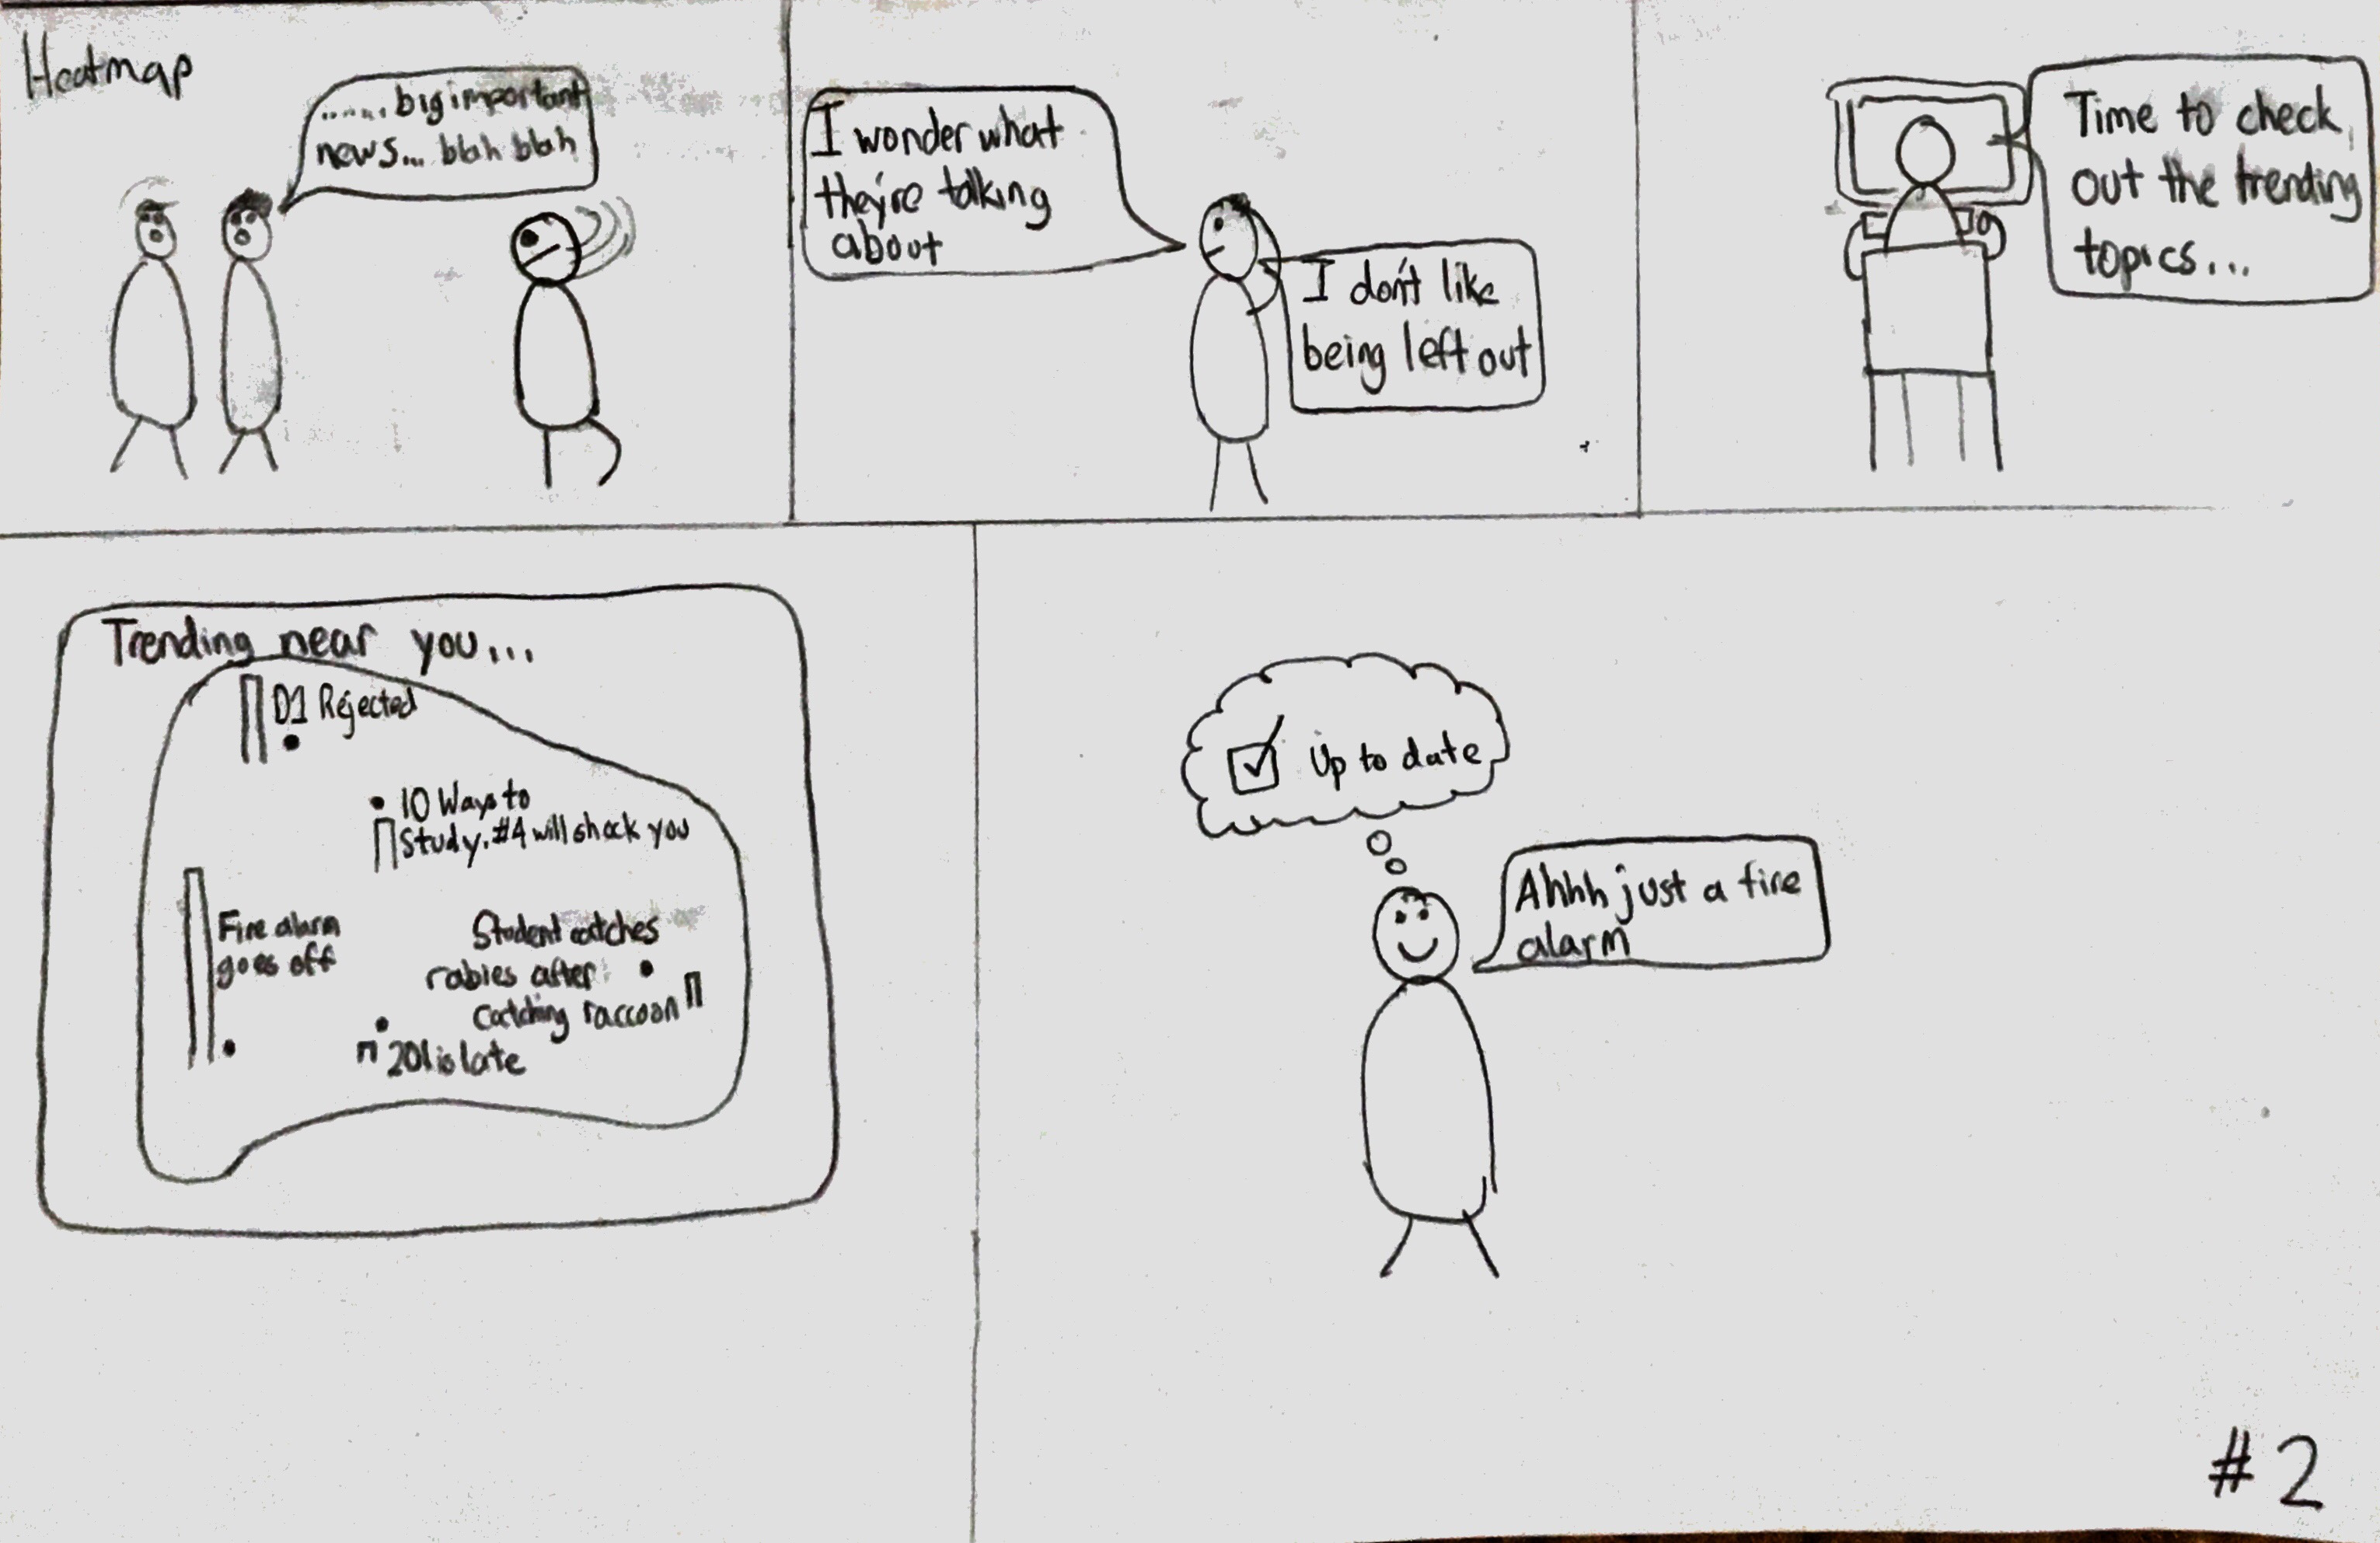 Heatmap
...... big important
news... blah blah
I wonder what
they're talking
about
I don't like
being left out
Time to check
out the trending
topics...
Trending near you...
D1 Rejected
10 Ways to
Study. #4 will shock you
Fire alarm
goes off
Student catches
rabies after
catching raccoon
201 is late
Up to date
Ahhh just a fire
alarm
#2